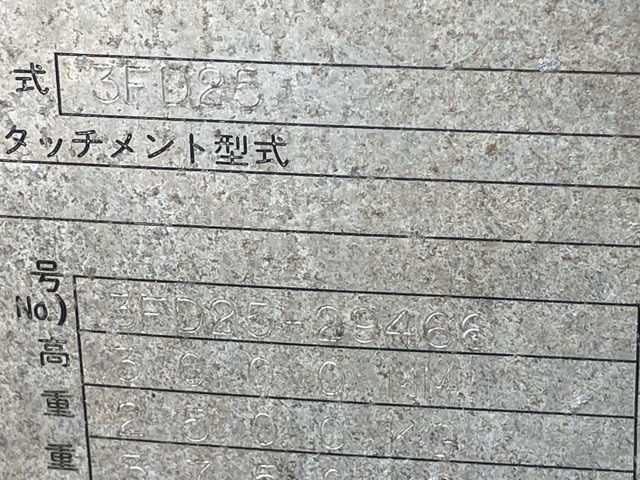 式 3FD25
タッチメント型式
号
No.) 3FD25-29466
高 3000MM
重 2500KG
重